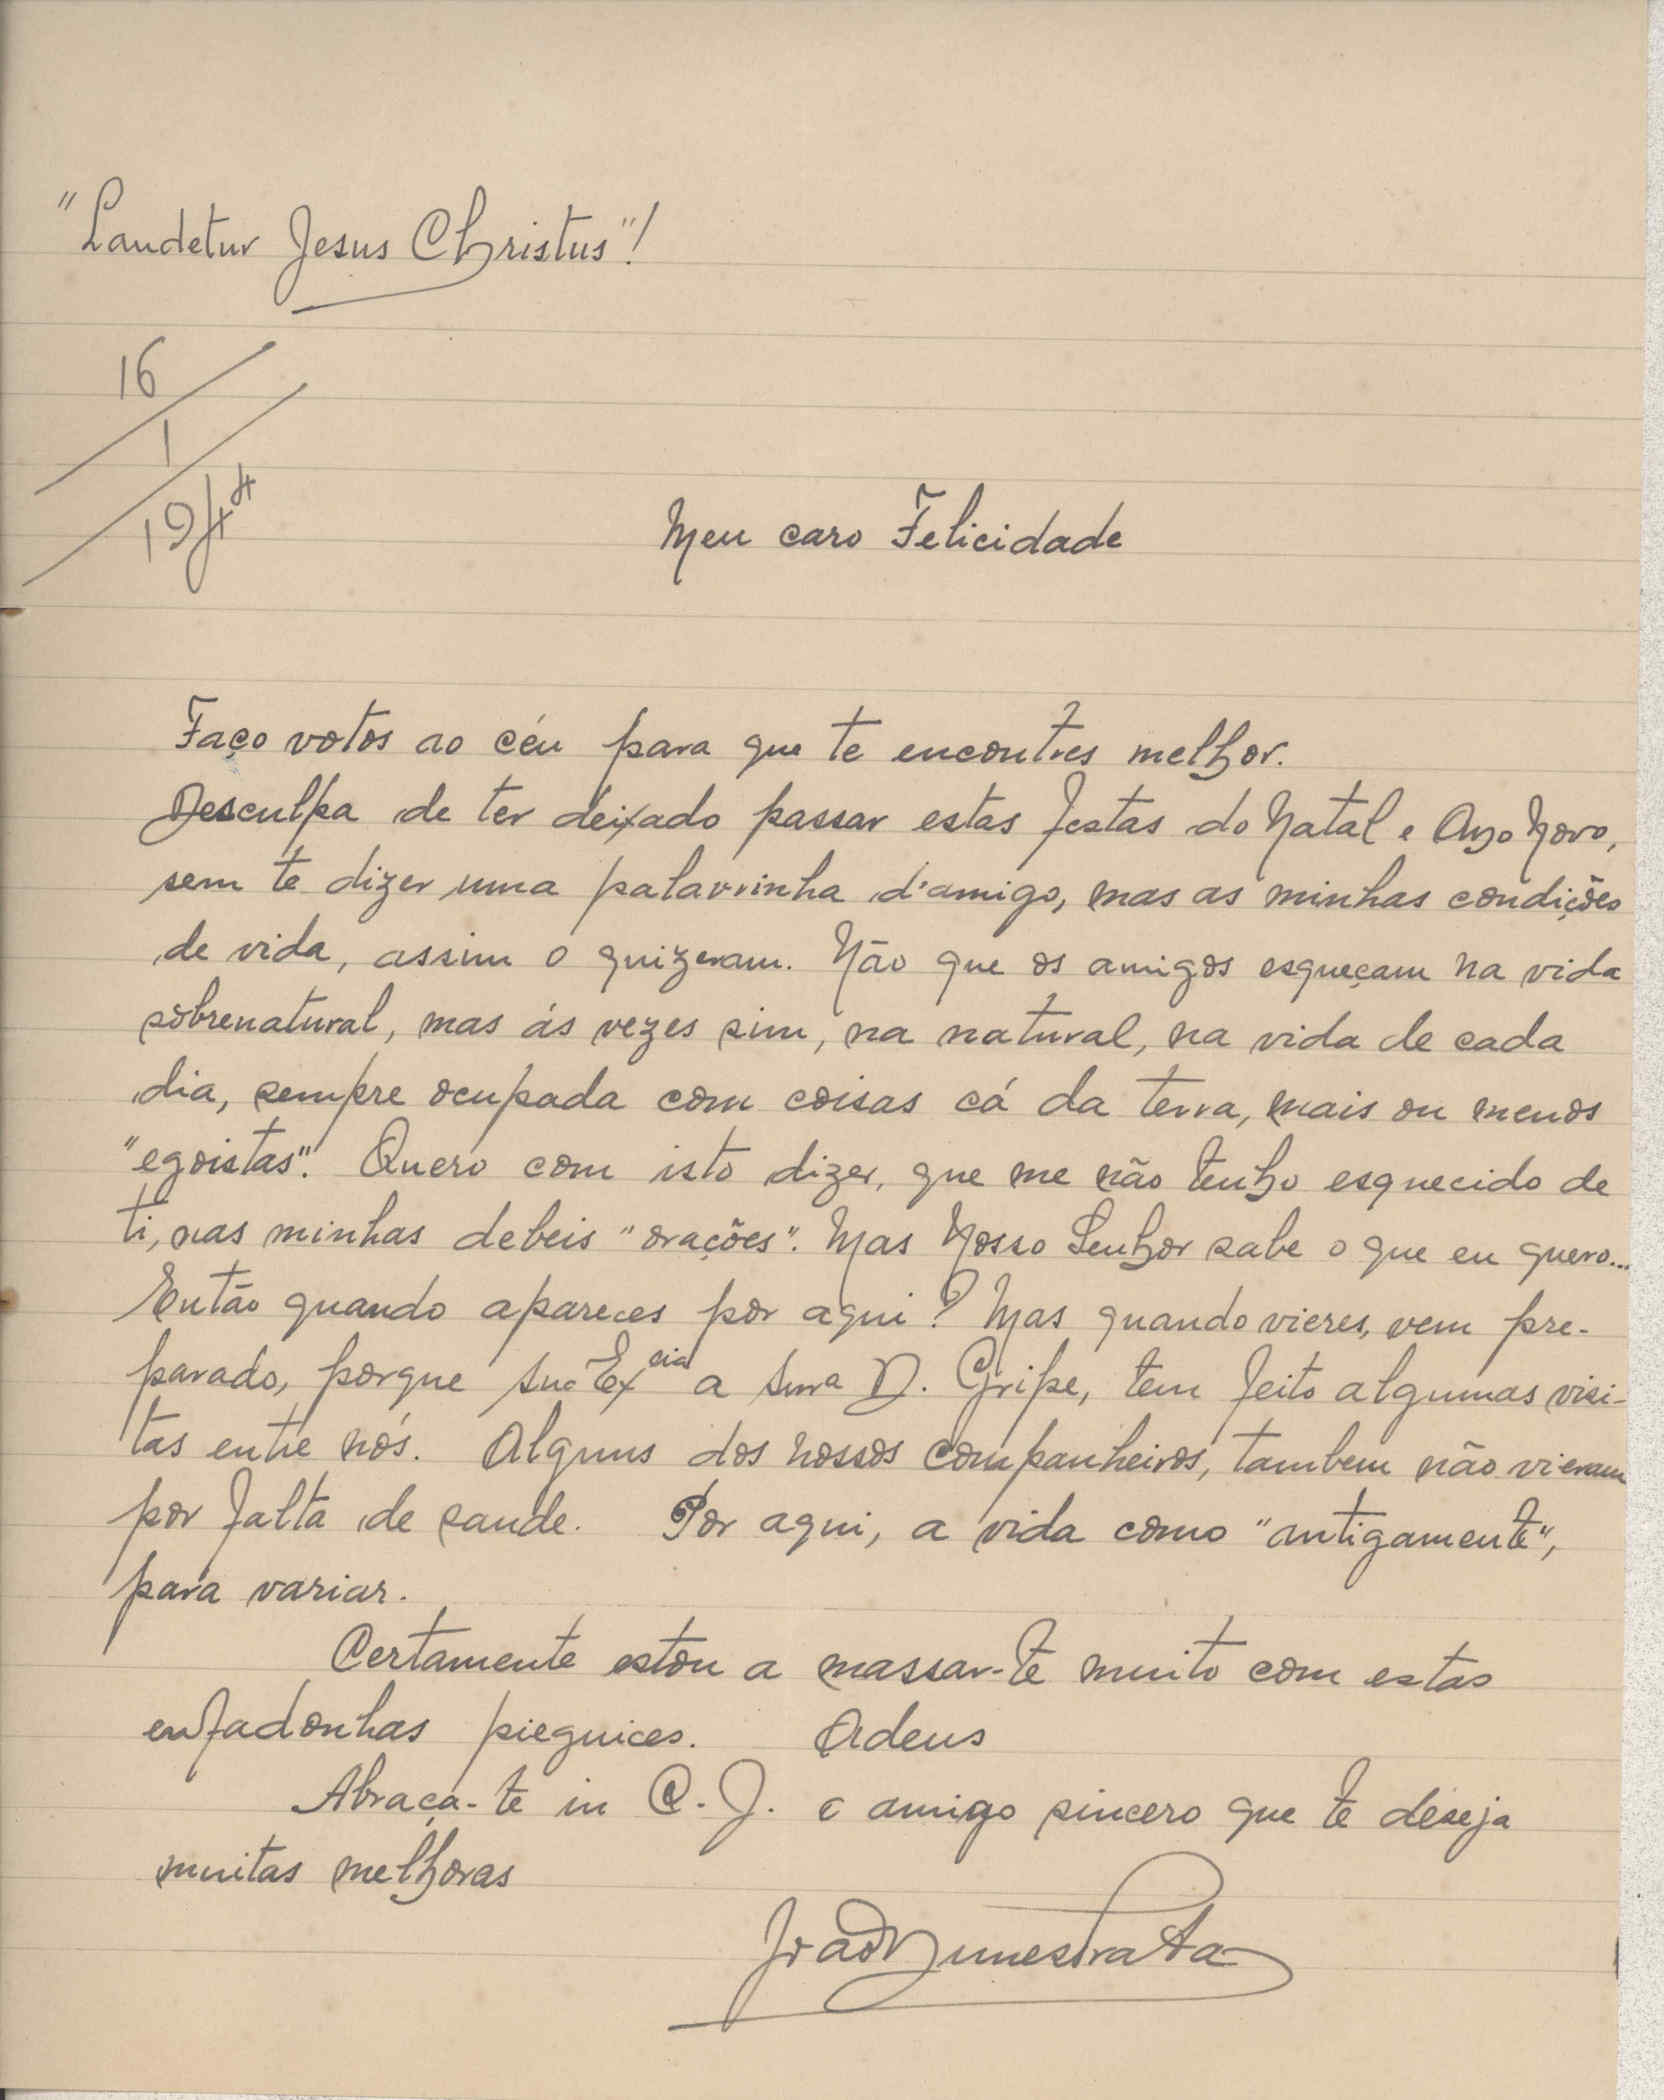 "Laudetur Jesus Christus"!
16
1
1944
Meu caro Felicidade
Faço votos ao céu para que te encontres melhor.
Desculpa de ter deixado passar estas festas do Natal e Ano Novo,
sem te dizer uma palavrinha d'amigo, mas as minhas condições
de vida, assim o quizeram. Não que os amigos esqueçam na vida
sobrenatural, mas ás vezes sim, na natural, na vida de cada
dia, sempre ocupada com coisas cá da terra, mais ou menos
"egoistas". Quero com isto dizer, que me não tenho esquecido de
ti, nas minhas debeis "orações". Mas Nosso Senhor sabe o que eu quero...
Então quando apareces por aqui? Mas quando vieres, vem pre-
parado, porque Sua Excia a Snra D. Gripe, tem feito algumas visi-
tas entre nós. Alguns dos nossos companheiros, tambem não vieram
por falta de saude. Por aqui, a vida como "antigamente",
para variar.
Certamente estou a massar-te muito com estas
enfadonhas pieguices. Adeus
Abraça-te in C. J. o amigo sincero que te deseja
muitas melhoras
João